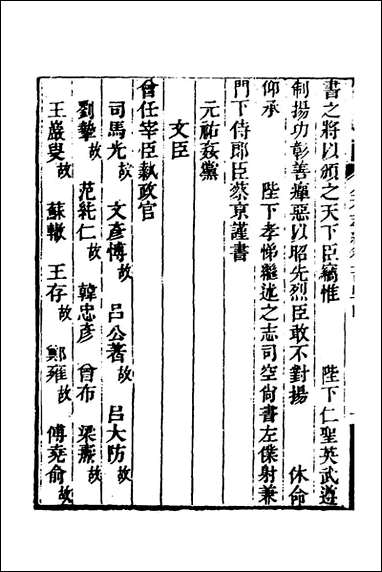 書之將以頒之天下臣竊惟　陛下仁聖英武遵
制揚功彰善癉惡以昭先烈臣敢不對揚　休命
仰承　陛下孝悌繼述之志司空尚書左僕射兼
門下侍郎臣蔡京謹書
元祐姦黨
文臣
曾任宰臣執政官
司馬光故　文彥博故　呂公著故　呂大防故
劉摯故　范純仁故　韓忠彥　曾布　梁燾故
王巖叟故　蘇轍　王存故　鄭雍故　傅堯俞故